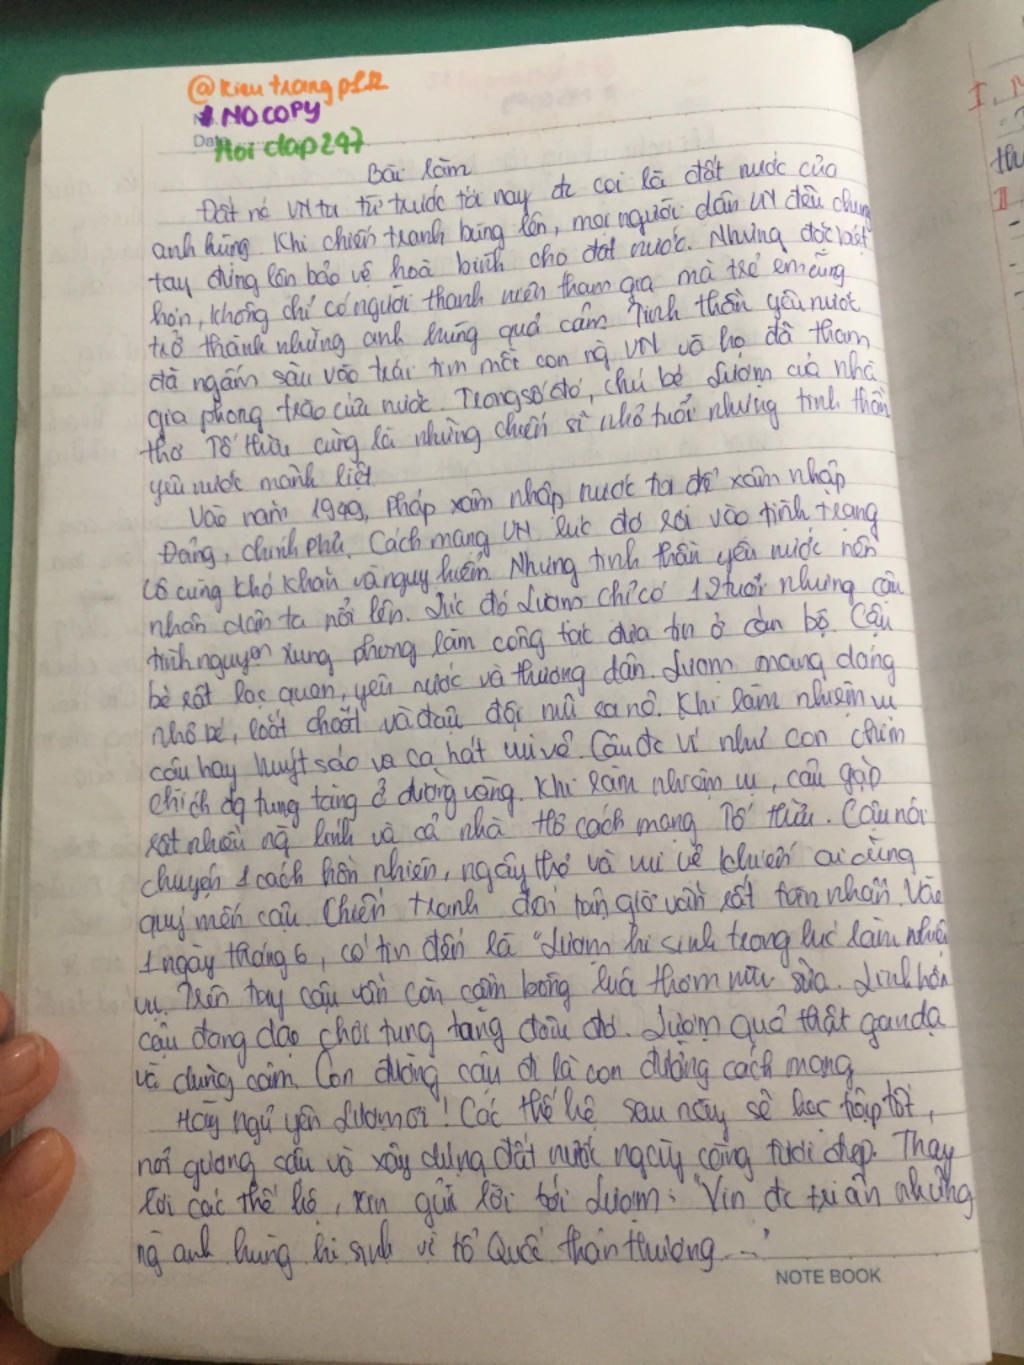 @kieutrangpb12
# NO COPY
Date
Hoi dap 247
Bài làm
Đất nc VN ta từ trước tới nay đc coi là đất nước của
anh hùng. Khi chiến tranh bùng lên, mọi người dân VN đều chung
tay đứng lên bảo vệ hoà bình cho đất nước. Nhưng đặc biệt
hơn, không chỉ có người thanh niên tham gia mà trẻ em cũng
trở thành những anh hùng quả cảm. Tinh thần yêu nước
đã ngấm sâu vào trái tim mỗi con ng VN và họ đã tham
gia phong trào cứu nước. Trong số đó, chú bé Lượm của nhà
thơ Tố Hữu cũng là những chiến sĩ nhỏ tuổi nhưng tinh thần
yêu nước mãnh liệt
Vào năm 1949, Pháp xâm nhập nước ta để xâm nhập
Đảng, chính phủ. Cách mạng VN lúc đó rơi vào tình trạng
vô cùng khó khăn và nguy hiểm. Nhưng tinh thần yêu nước nên
nhân dân ta nổi lên. Lúc đó Lượm chỉ có 12 tuổi nhưng cậu
tình nguyện xung phong làm công tác đưa tin ở cán bộ. Cậu
bé rất lạc quan, yêu nước và thương dân. Lượm mang dáng
nhỏ bé, loắt choắt và đầu đội mũ ca nô. Khi làm nhiệm vụ
cậu hay huýt sáo và ca hát vui vẻ. Cậu đc ví như con chim
chích đg tung tăng ở đường vàng. Khi làm nhiệm vụ, cậu gặp
rất nhiều ng lính và cả nhà thơ cách mạng Tố Hữu. Cậu nói
chuyện 1 cách hồn nhiên, ngây thơ và vui vẻ khiến ai cũng
quý mến cậu. Chiến tranh đến bây giờ vẫn rất tàn nhẫn. Vào
1 ngày tháng 6, có tin đến là "Lượm hi sinh trong lúc làm nhiệm
vụ. Trên tay cậu vẫn còn cầm bông lúa thơm mùi sữa. Linh hồn
cậu đang dạo chơi tung tăng đâu đó. Lượm quả thật gan dạ
và dũng cảm. Con đường cậu đi là con đường cách mạng
Hãy ngủ yên Lượm ơi! Các thế hệ sau này sẽ học tập tốt,
noi gương cậu và xây dựng đất nước ngày càng tươi đẹp. Thay
lời các thế hệ, xin gửi lời tới Lượm: "Xin đc tri ân những
ng anh hùng hi sinh vì tổ Quốc thân thương ..."
NOTE BOOK